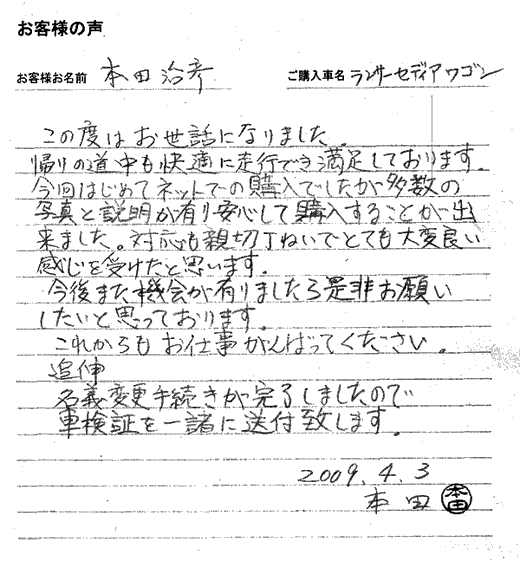 お客様の声
お客様お名前 本田治彦 ご購入車名 ランサーセディアワゴン
この度はお世話になりました。
帰りの道中も快適に走行でき満足しております。
今回はじめてネットでの購入でしたが多数の
写真と説明が有り安心して購入することが出
来ました。対応も親切丁ねいでとても大変良い
感じを受けたと思います。
今後また機会が有りましたら是非お願い
したいと思っております。
これからもお仕事がんばってください。
追伸
名義変更手続きが完了しましたので
車検証を一諸に送付致します。
2009.4.3
本田 本田